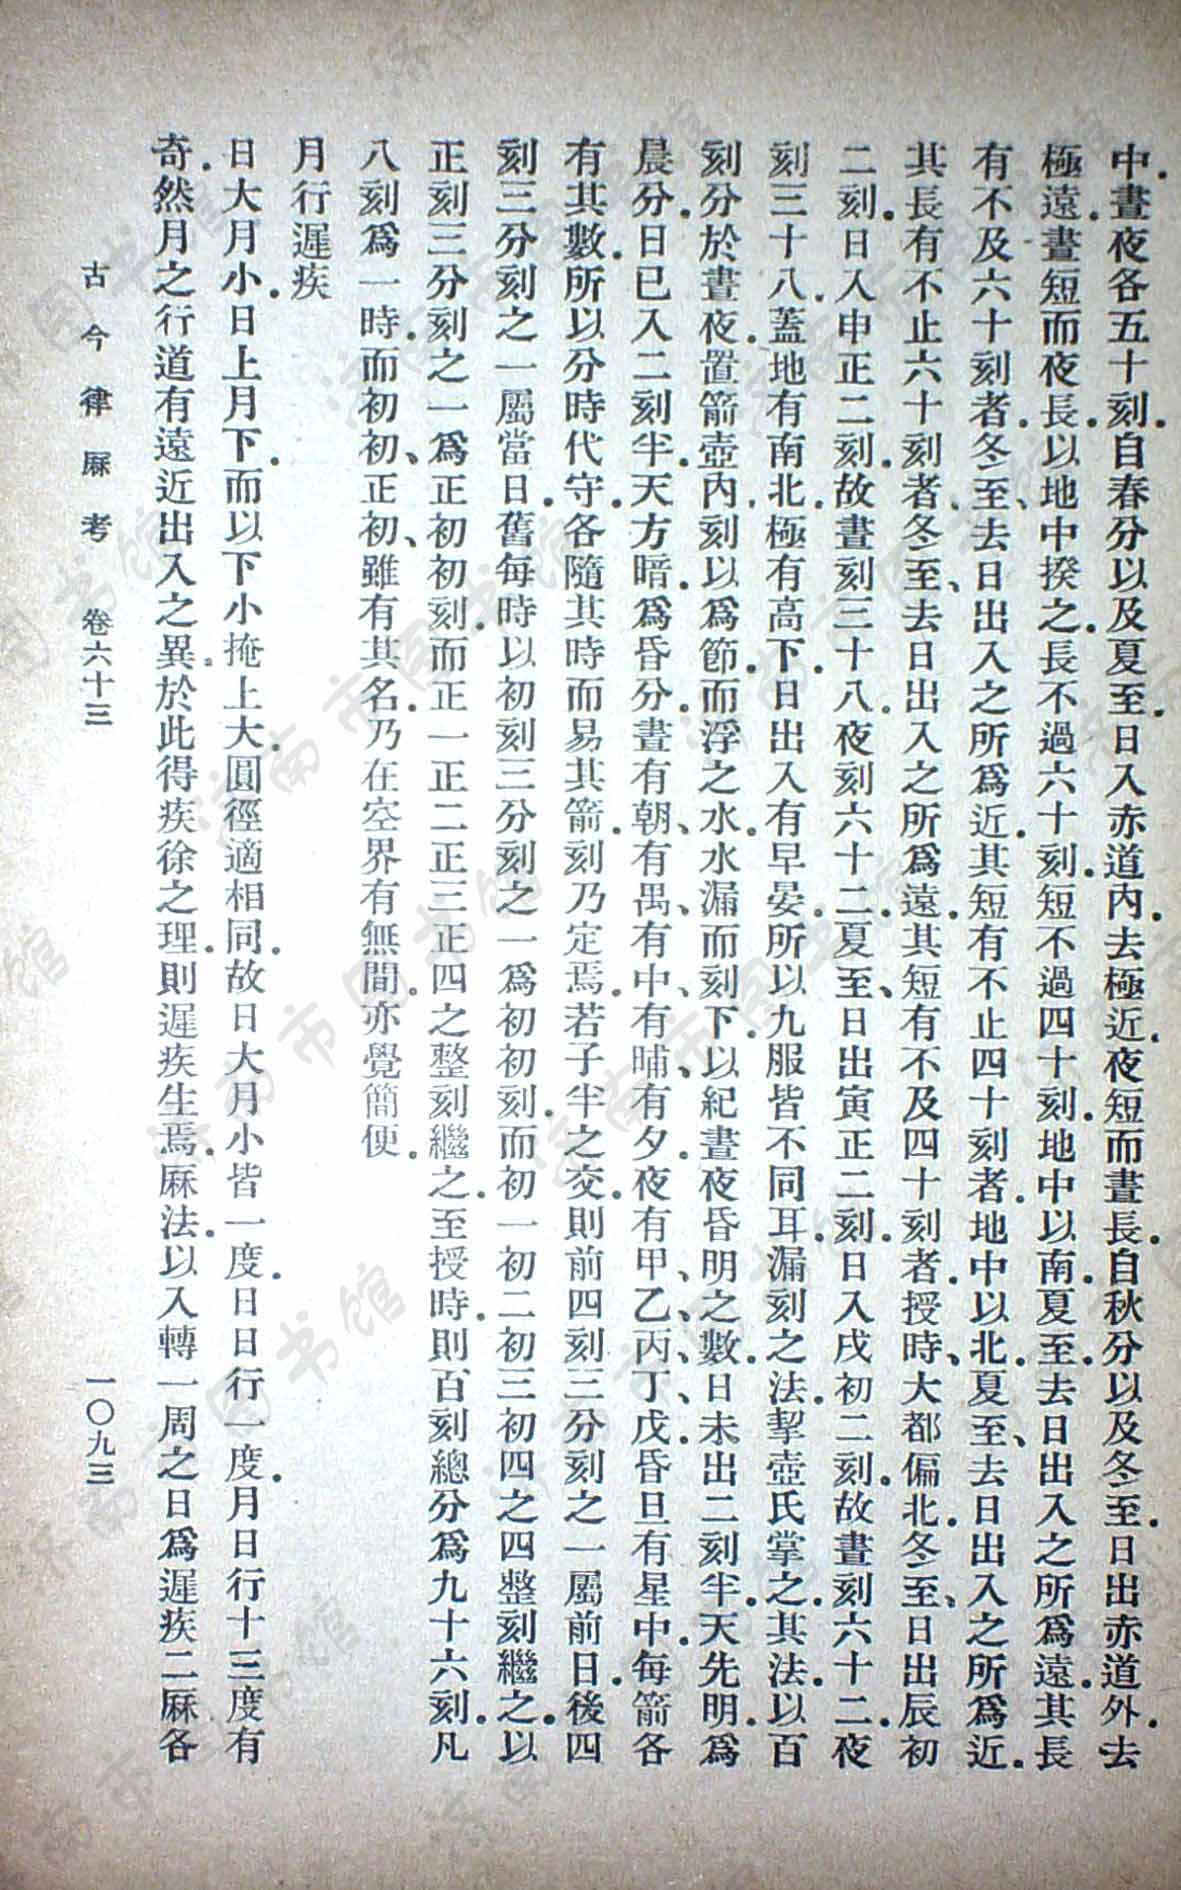 中.晝夜各五十刻.自春分以及夏至.日入赤道內.去極近.夜短而晝長.自秋分以及冬至.日出赤道外.去
極遠.晝短而夜長.以地中揆之.長不過六十刻.短不過四十刻.地中以南.夏至.去日出入之所爲遠.其長
有不及六十刻者.冬至、去日出入之所爲近.其短有不止四十刻者.地中以北.夏至、去日出入之所爲近.
其長有不止六十刻者.冬至、去日出入之所爲遠.其短有不及四十刻者.授時、大都偏北.冬至、日出辰初
二刻.日入申正二刻.故晝刻三十八.夜刻六十二.夏至、日出寅正二刻.日入戌初二刻.故晝刻六十二.夜
刻三十八.蓋地有南北.極有高下.日出入有早晏.所以九服皆不同耳.漏刻之法.挈壺氏掌之.其法.以百
刻分於晝夜.置箭壺內.刻以爲節.而浮之水.水漏而刻下.以紀晝夜昏明之數.日未出二刻半.天先明.爲
晨分.日已入二刻半.天方暗.爲昏分.晝有朝、有禺、有中、有晡、有夕.夜有甲、乙、丙、丁、戊.昏旦有星中.每箭各
有其數.所以分時代守.各隨其時而易其箭.刻乃定焉.若子半之交.則前四刻三分刻之一屬前日.後四
刻三分刻之一屬當日.舊每時以初刻三分刻之一爲初初刻.而初一初二初三初四之四整刻繼之.以
正刻三分刻之一爲正初初刻.而正一正二正三正四之整刻繼之.至授時.則百刻總分爲九十六刻.凡
八刻爲一時.而初初、正初、雖有其名.乃在空界有無間.亦覺簡便.
月行遲疾
日大月小.日上月下.而以下小掩上大.圓徑適相同.故日大月小皆一度.日日行一度.月日行十三度有
奇.然月之行道有遠近出入之異.於此得疾徐之理.則遲疾生焉.厤法.以入轉一周之日爲遲疾二厤.各
古今律厤考 卷六十三 一〇九三